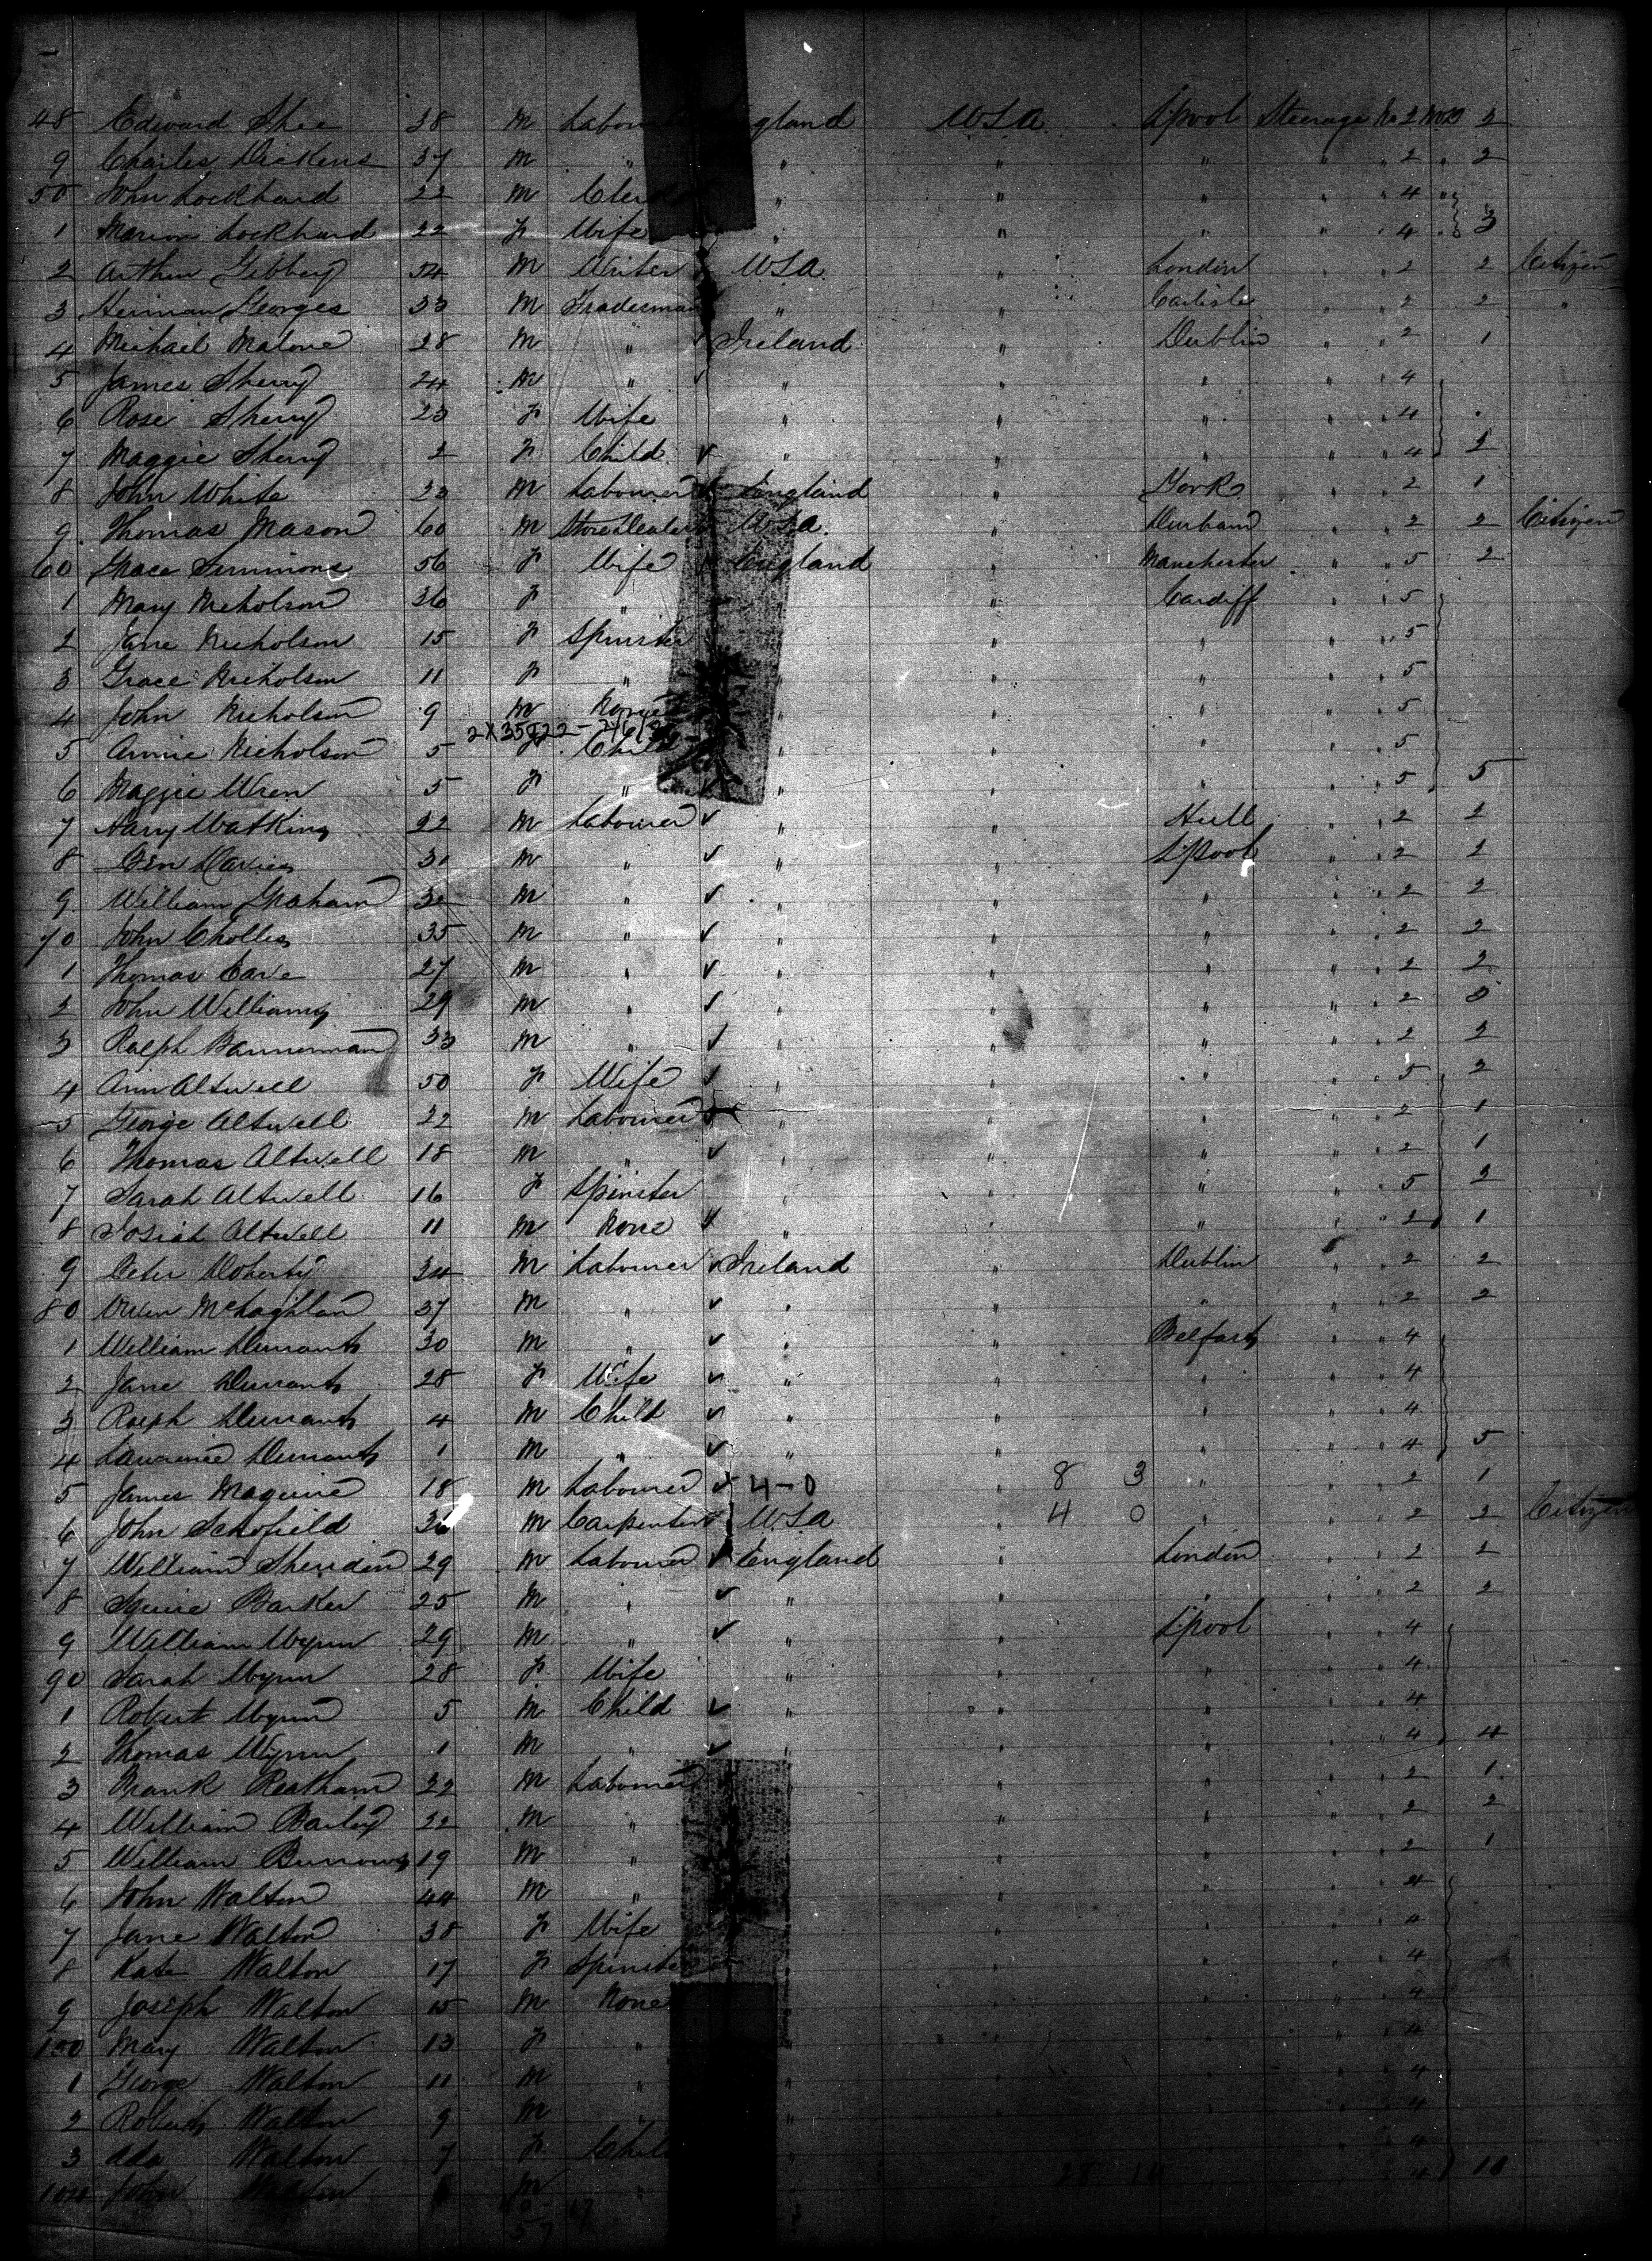 48 Edward Shee 38 M Labour gland USA L'pool Steerage No 2 2
9 Charles Dickens 37 M " " " " " " 2 " 2
50 John Lockhard 22 M Cler " " " " " 4 "
1 Marion Lockhard 22 F Wife " " " " " 4 " 3
2 Arthur Gibbery 54 M Writer USA " London " " 2 2 Citizen
3 Herman Georges 33 M Tradesman " " Carlisle " " 2 2 "
4 Michael Malone 28 M " Ireland " Dublin " " 2 1
5 James Sherry 24 M " " " " " " 4
6 Rose Sherry 23 F Wife " " " " " 4
7 Maggie Sherry 2 F Child " " " " " 4 2
8 John White 23 M Labourer England " York " " 2 1
9 Thomas Mason 60 M Store Dealer USA. " Durham " " 2 2 Citizen
60 Grace Simmons 56 F Wife England " Manchester " " 5 2
1 Mary Nicholson 36 F " " " Cardiff " " 5
2 Jane Nicholson 15 F Spinster " " " " " 5
3 Grace Nicholson 11 F " " " " " " 5
4 John Nicholson 9 M None " " " " " 5
5 Annie Nicholson 5 F Child " " " " " 5
6 Maggie Wren 5 F " " " " " " 5 5
7 Harry Watkins 22 M Labourer " " Hull " " 2 2
8 Ben Davies 30 M " " " L'pool " " 2 2
9 William Graham 32 M " " " " " " 2 2
70 John Chollis 35 M " " " " " " 2 2
1 Thomas Cave 27 M " " " " " " 2 2
2 John Williams 29 M " " " " " " 2 0
3 Ralph Bannerman 33 M " " " " " " 2 2
4 Ann Altwell 50 F Wife " " " " " 5 2
5 George Altwell 22 M Labourer " " " " " 2 1
6 Thomas Altwell 18 M " " " " " " 2 1
7 Sarah Altwell 16 F Spinster " " " " " 5 2
8 Josiah Altwell 11 M None " " " " " 2 1
9 Peter Doherty 34 M Labourer Ireland " Dublin " " 2 2
80 Owen McLaghlan 37 M " " " " " " 2 2
1 William Durrant 30 M " " " Belfast " " 4
2 Jane Durrant 28 F Wife " " " " " 4
3 Ralph Durrant 4 M Child " " " " " 4
4 Laurence Durrant 1 M " " " " " " 4 5
5 James Maguire 18 M Labourer 4-0 " 8 3 " " " 2 1
6 John Schofield 36 M Carpenter USA 4 0 " " " 2 2 Citizen
7 William Sheridan 29 M Labourer England " London " " 2 2
8 Squire Barker 25 M " " " " " " 2 2
9 William Wynn 29 M " " " L'pool " " 4
90 Sarah Wynn 28 F Wife " " " " " 4
1 Robert Wynn 5 M Child " " " " " 4
2 Thomas Wynn 1 M " " " " " " 4 4
3 Frank Reatham 32 M Labourer " " " " " 2 1
4 William Bailey 22 M " " " " " 2 2
5 William Burrows 19 M " " " " " 2 1
6 John Walton 44 M " " " " " 4
7 Jane Walton 38 F Wife " " " " 4
8 Kate Walton 17 F Spinste " " " " 4
9 Joseph Walton 15 M None " " " " 4
100 Mary Walton 13 F " " " " " 4
1 George Walton 11 M " " " " " 4
2 Robert Walton 9 M " " " " " 4
3 Ada Walton 7 F Chil " " " " 4
104 John Walton M " 4 10
57